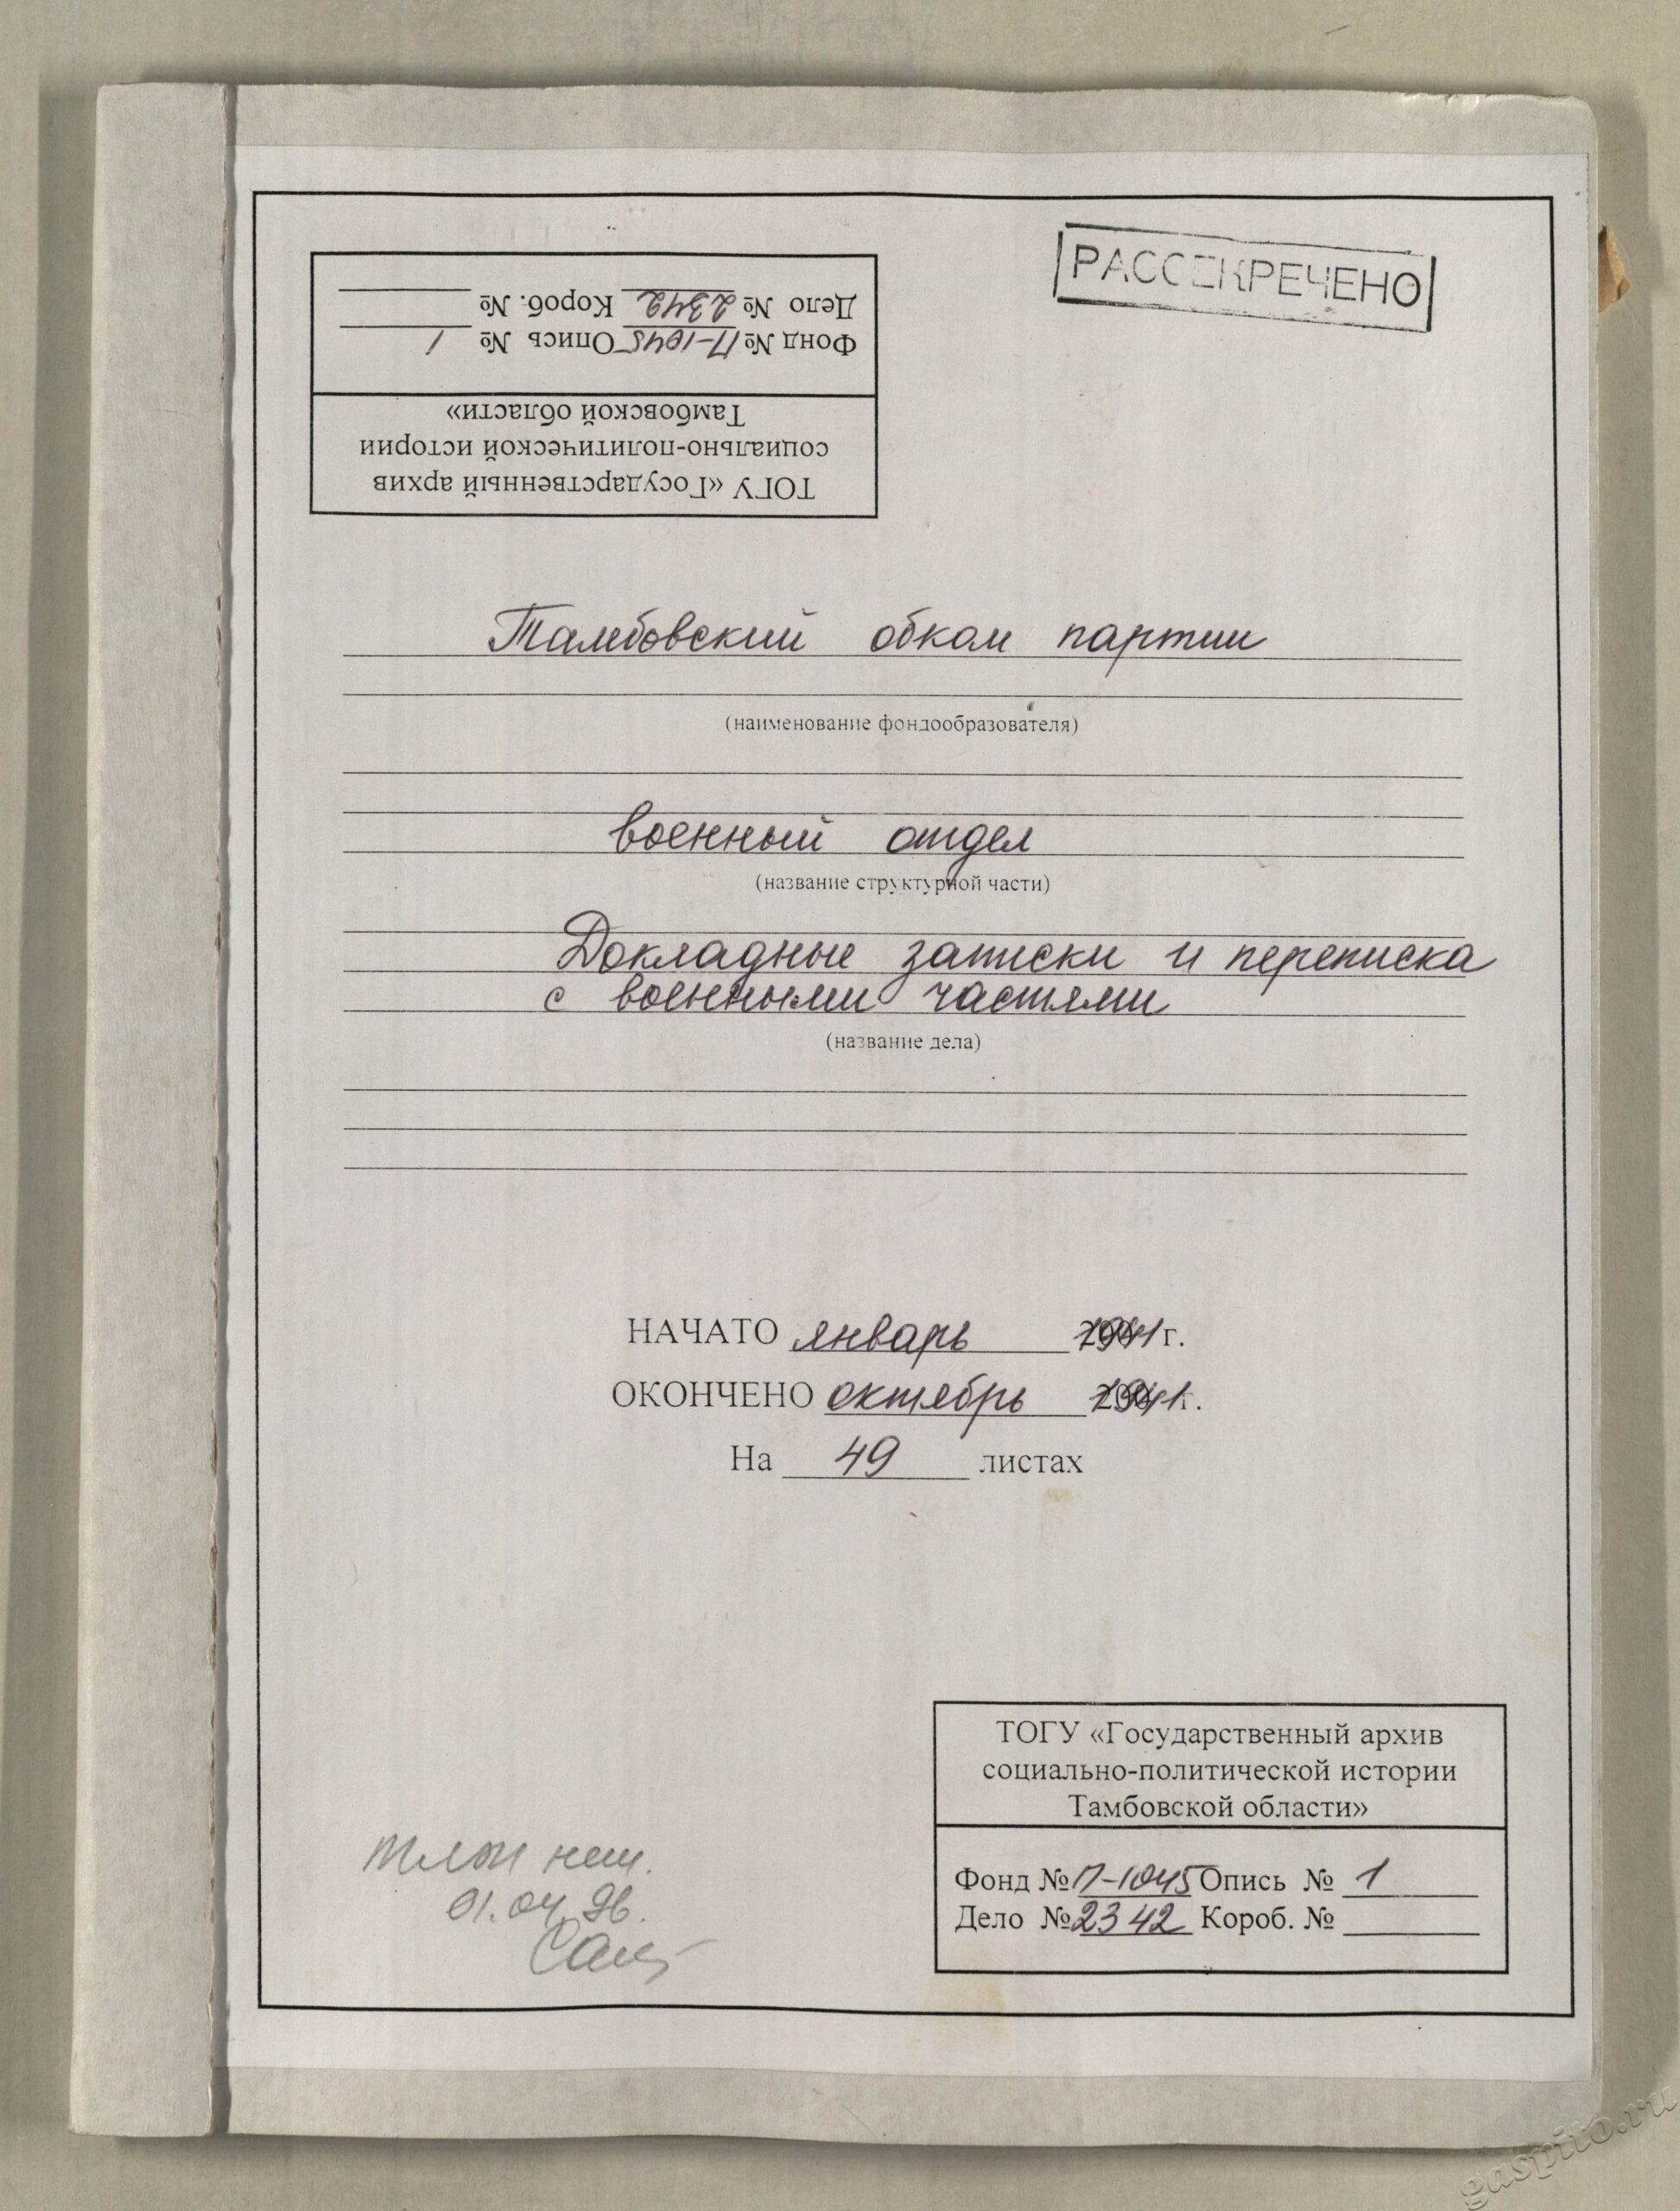 РАССЕКРЕЧЕНО
ТОГУ «Государственный архив
социально-политической истории
Тамбовской области»
Фонд № П-1045 Опись № 1
Дело № 2342 Короб. №
Тамбовский обком партии
(наименование фондообразователя)
военный отдел
(название структурной части)
Докладные записки и переписка
с военными частями
(название дела)
НАЧАТО январь 1941 г.
ОКОНЧЕНО октябрь 1941 г.
На 49 листах
ТОГУ «Государственный архив
социально-политической истории
Тамбовской области»
Фонд № П-1045 Опись № 1
Дело № 2342 Короб. №
нет.
01.04.96.
gaspito.ru